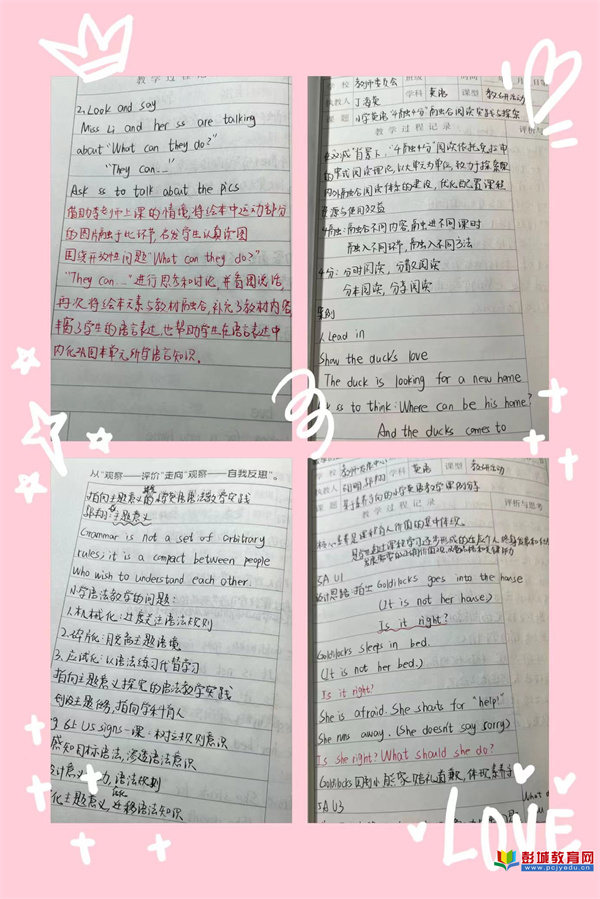 教学过程记
2. Look and say
Miss Li and her ss are talking
about "What can they do?"
"They can..."
Ask ss to talk about the pics
借助李老师上课的情境,将绘本中运动部分
的图片融于此环节,启发学生认真读图
围绕开放性问题"What can they do?"
"They can..."进行思考和讨论,并看图说话,
再次将绘本元素与教材融合,补充了教材内容,
丰富了学生的语言表达,也帮助学生在语言表达中
内化巩固本单元所学语言知识。
校 教师委员会 班级 时间 年 月 日
执教人 学科 英语 课型 教研活动
课题 小学英语"4融4分"融合阅读实践与探索
教学过程记录 评析与
"背景下,"4融4分"阅读依托
阅读理论,以大单元为单位,致力于探索
融合阅读体系的建设,优化配置课程
资源与使用效益
4融:融合不同内容,融进不同课时
融入不同环节,融入不同方法
4分:分时阅读,分级阅读
分本阅读,分享阅读
案例
1. Lead in
Show the ducks love
The duck is looking for a new home
ss to think: Where can be his home?
And the ducks comes to
从"观察——评价"走向"观察——自我反思"。
指向主题意义的小学英语语法教学实践
主题意义
Grammar is not a set of arbitrary
rules; it is a compact between people
who wish to understand each other.
小学语法教学的问题:
1. 机械化:过度关注语法规则
2. 碎片化:脱离主题语境
3. 应试化:以语法练习代替学习
指向主题意义探究的语法教学实践
创设主题情境,指向学科育人
6B U5 Signs 一课:树立规则意识
感知目标语法,渗透语法意识
语法规则
化主题意义,迁移语法知识
校 教师发展中心 学科 英语 课型 教研活动
执教人
课题 素养导向的小学英语教学课例分享
教学过程记录 评析与思考
核心素养是课程育人价值的集中体现。
5A U1
设计思路 Goldilocks goes into the house
(It is not her house.)
Is it right?
Goldilocks sleeps in bed.
(It is not her bed.)
Is it right?
She is afraid. She shouts for "help!"
She runs away. (She doesn't say sorry)
Is she right? What should she do?
Goldilocks 回到小熊家赔礼道歉,体现素养
5A U3
What
LOVE
彭城教育网
www.pcjyedu.cn